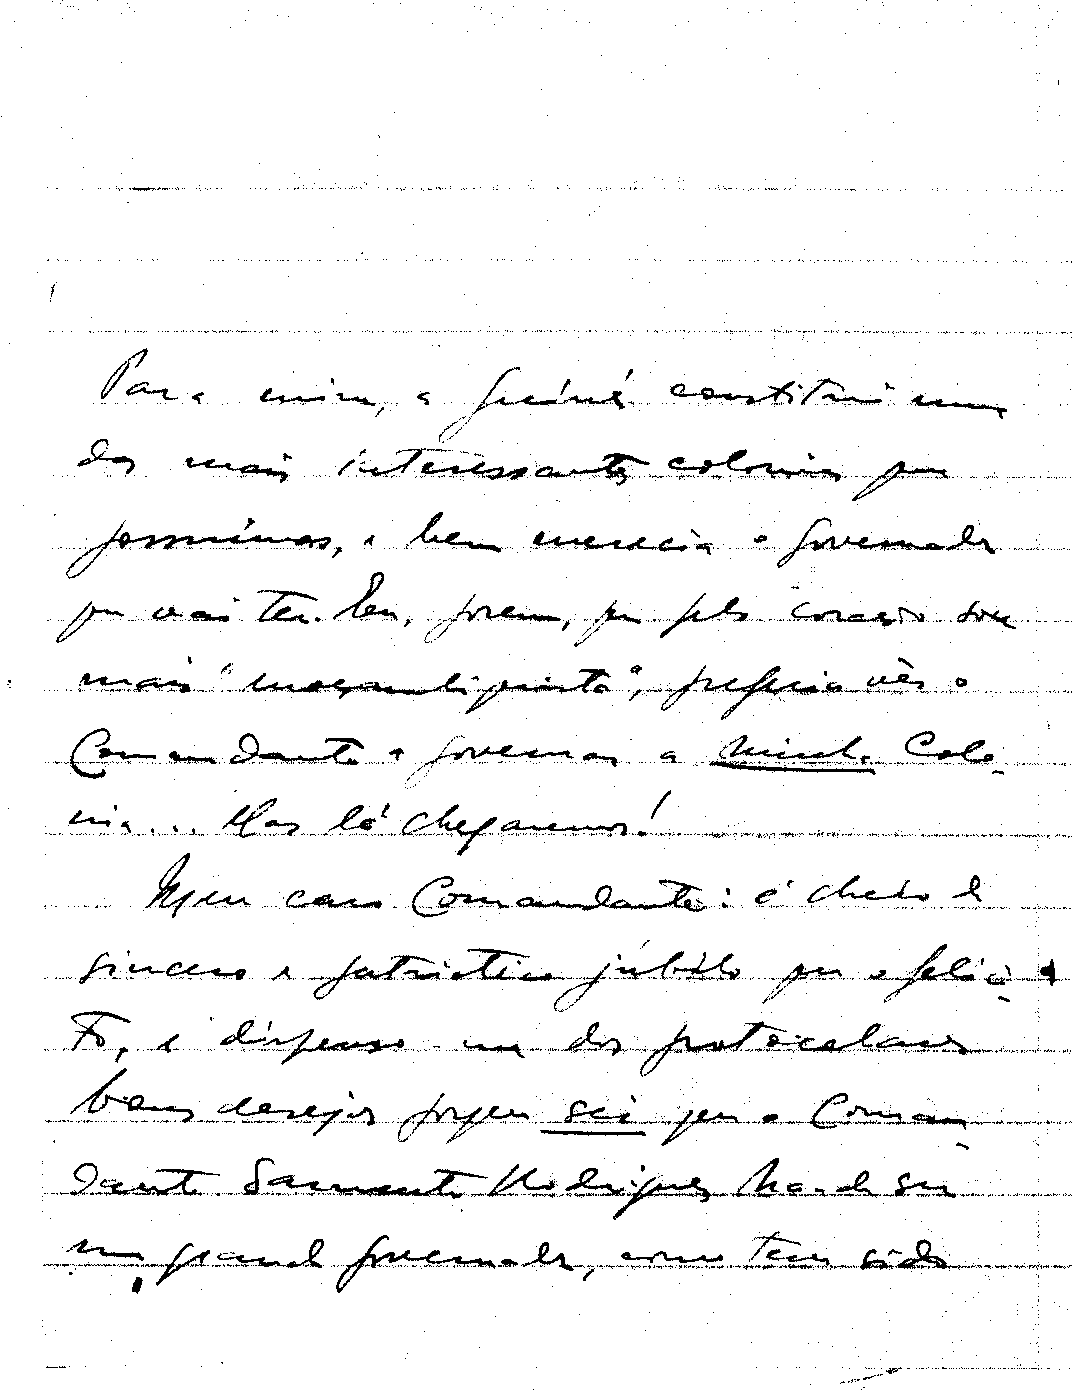 Para mim, a Guiné constitui uma
das mais interessantes colonias que
possuimos, e bem merecia o governador
que vai ter. Eu, porem, que pelo coração sou
mais "moçambiquista", preferia vêr o
Comandante a governar a minha Colo-
nia... Mas lá chegaremos!
Meu caro Comandante: é cheio de
sincero e patriotico júbilo que o felici-
to, e dispenso-me dos protocolares
bons desejos porque sei que o Coman-
dante Sarmento Rodrigues ha-de ser
um grande governador, como tem sido